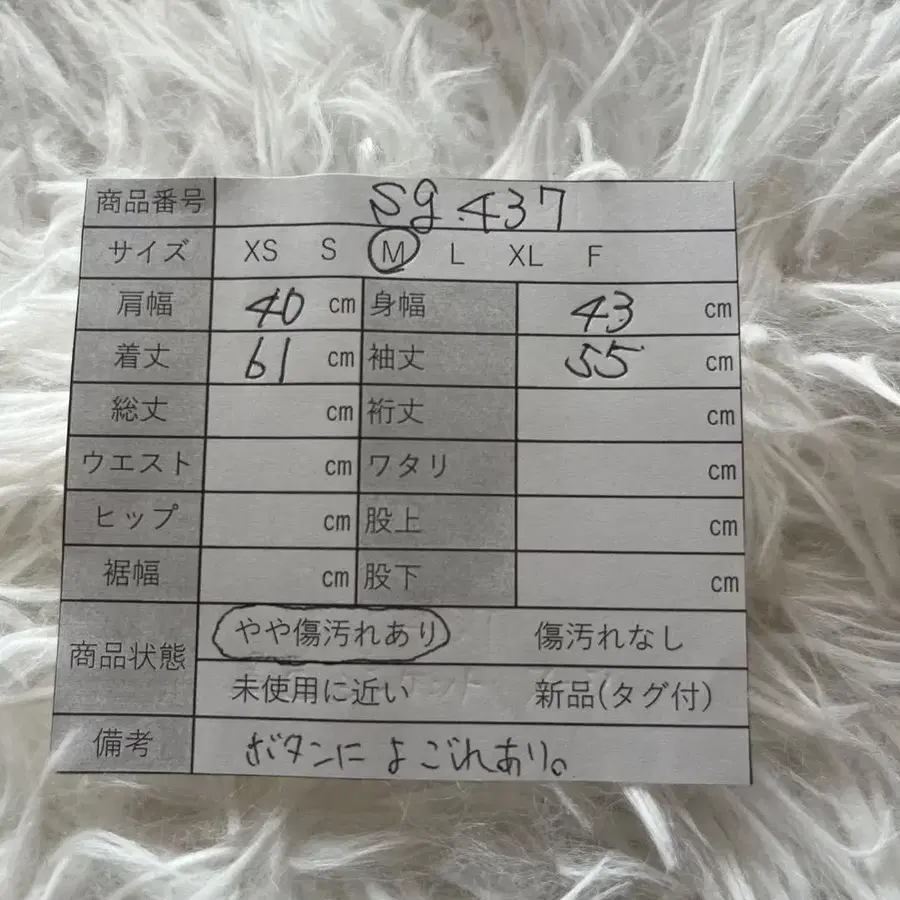 商品番号 sg.437
サイズ XS S M L XL F
肩幅 40 cm 身幅 43 cm
着丈 61 cm 袖丈 55 cm
総丈 cm 裄丈 cm
ウエスト cm ワタリ cm
ヒップ cm 股上 cm
裾幅 cm 股下 cm
商品状態 やや傷汚れあり 傷汚れなし
未使用に近い 新品(タグ付)
備考 ボタンによごれあり。